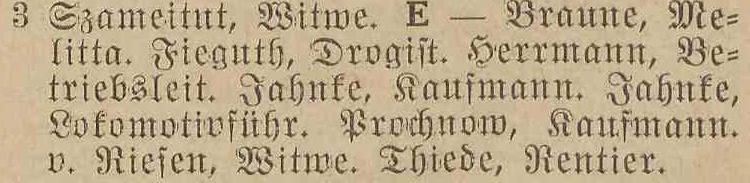 3 Szameitut, Witwe. E — Braune, Me-
litta. Fieguth, Drogist. Herrmann, Be-
triebsleit. Jahnke, Kaufmann. Jahnke,
Lokomotivführ. Prochnow, Kaufmann.
v. Riesen, Witwe. Thiede, Rentier.